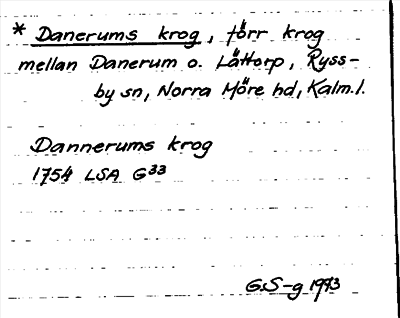 * Danerums krog, förr krog
mellan Danerum o. Lättorp, Ryss-
by sn, Norra Möre hd, Kalm. l.
Dannerums krog
1754 LSA G33
G.S-g 1973